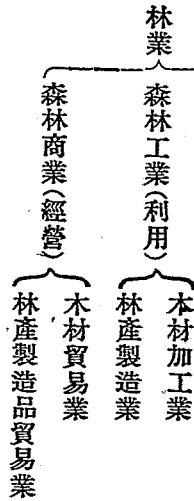 林業
森林工業(利用)
木材加工業
林產製造業
森林商業(經營)
木材貿易業
林產製造品貿易業